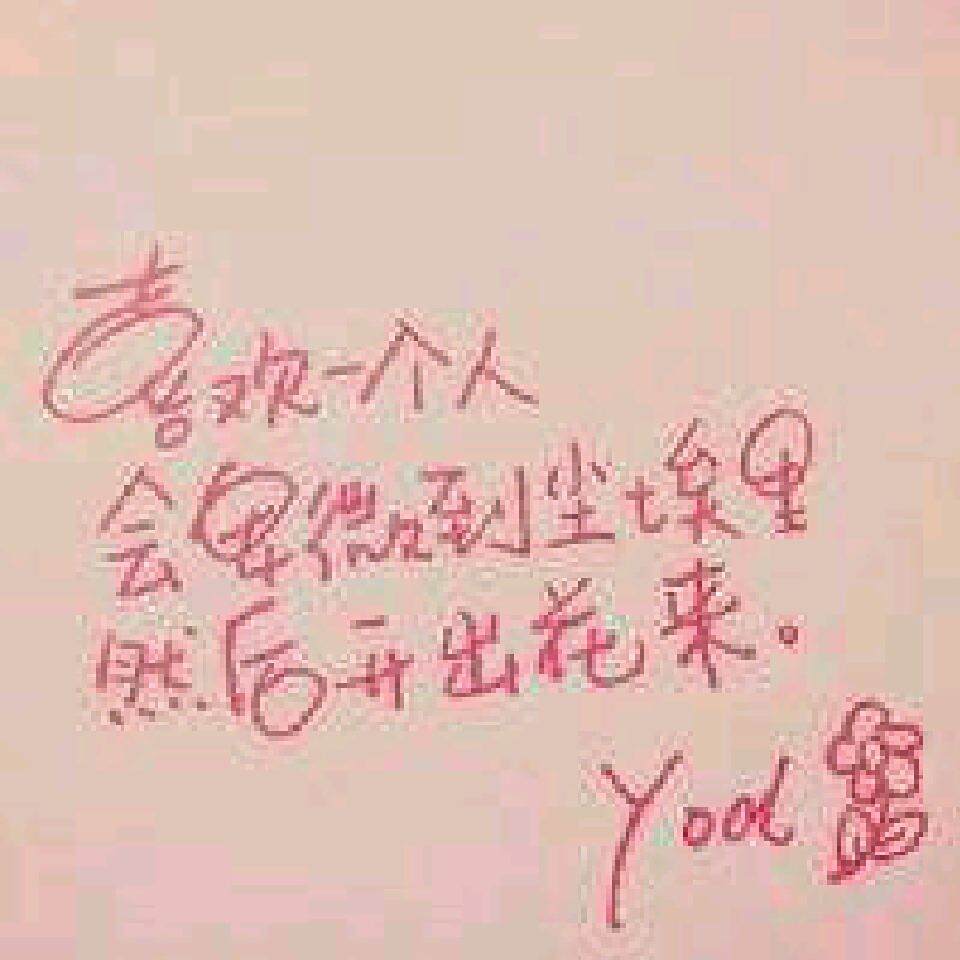 喜欢一个人
会卑微到尘埃里
然后开出花来。
Yood